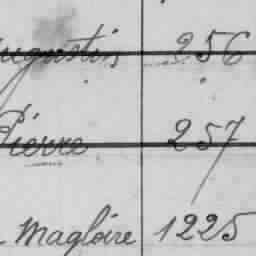 Augustin 256
Pierre 257
Magloire 1225